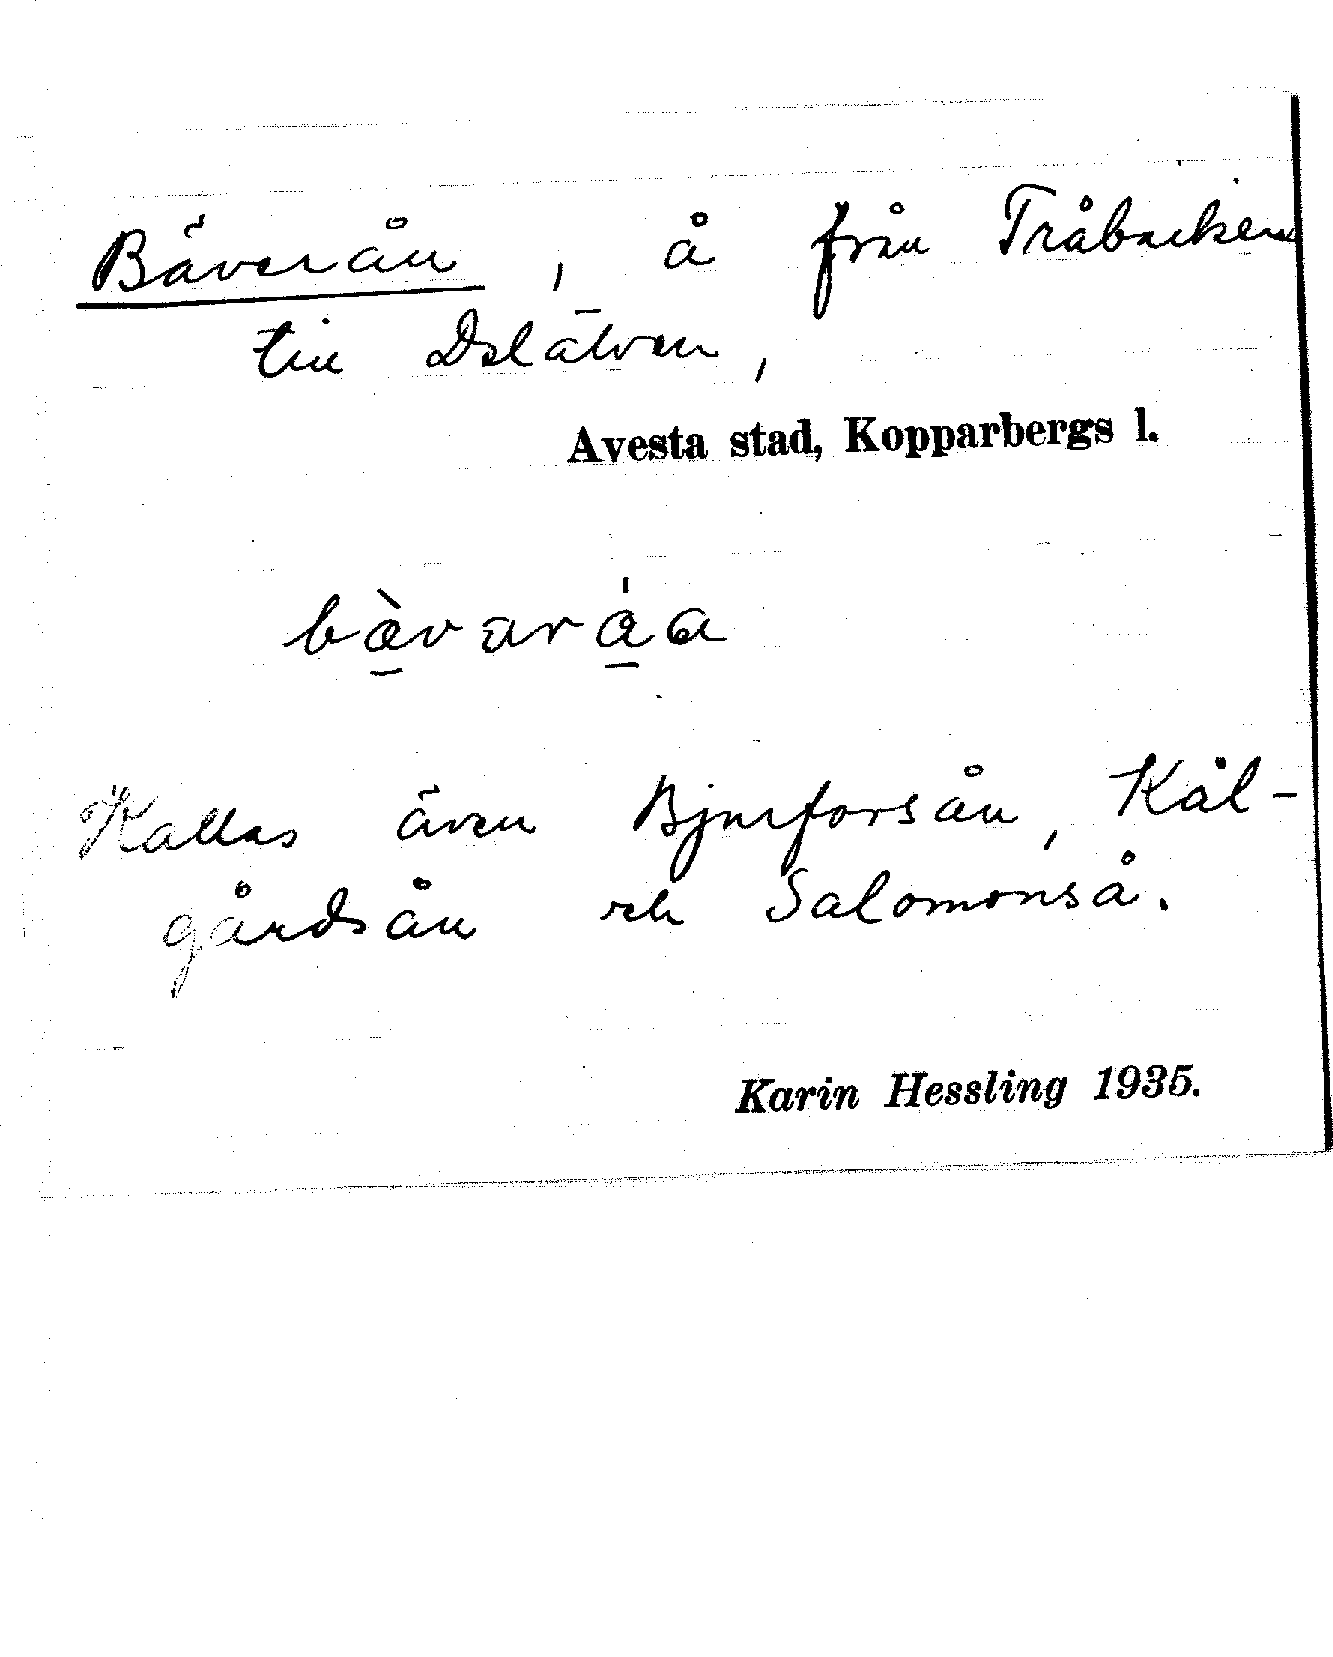 Bäverån, å från Tråbacken
till Dalälven,
Avesta stad, Kopparbergs l.
bæ̀varåa
Kallas även Bjurforsån, Kål-
gårdsån och Salomonså.
Karin Hessling 1935.